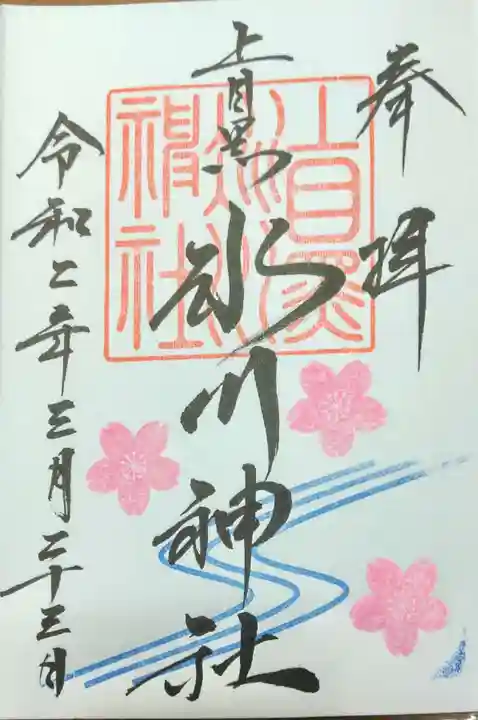 奉拝
上目黒
氷川神社
令和二年三月二十三日
上目黒
氷川
神社